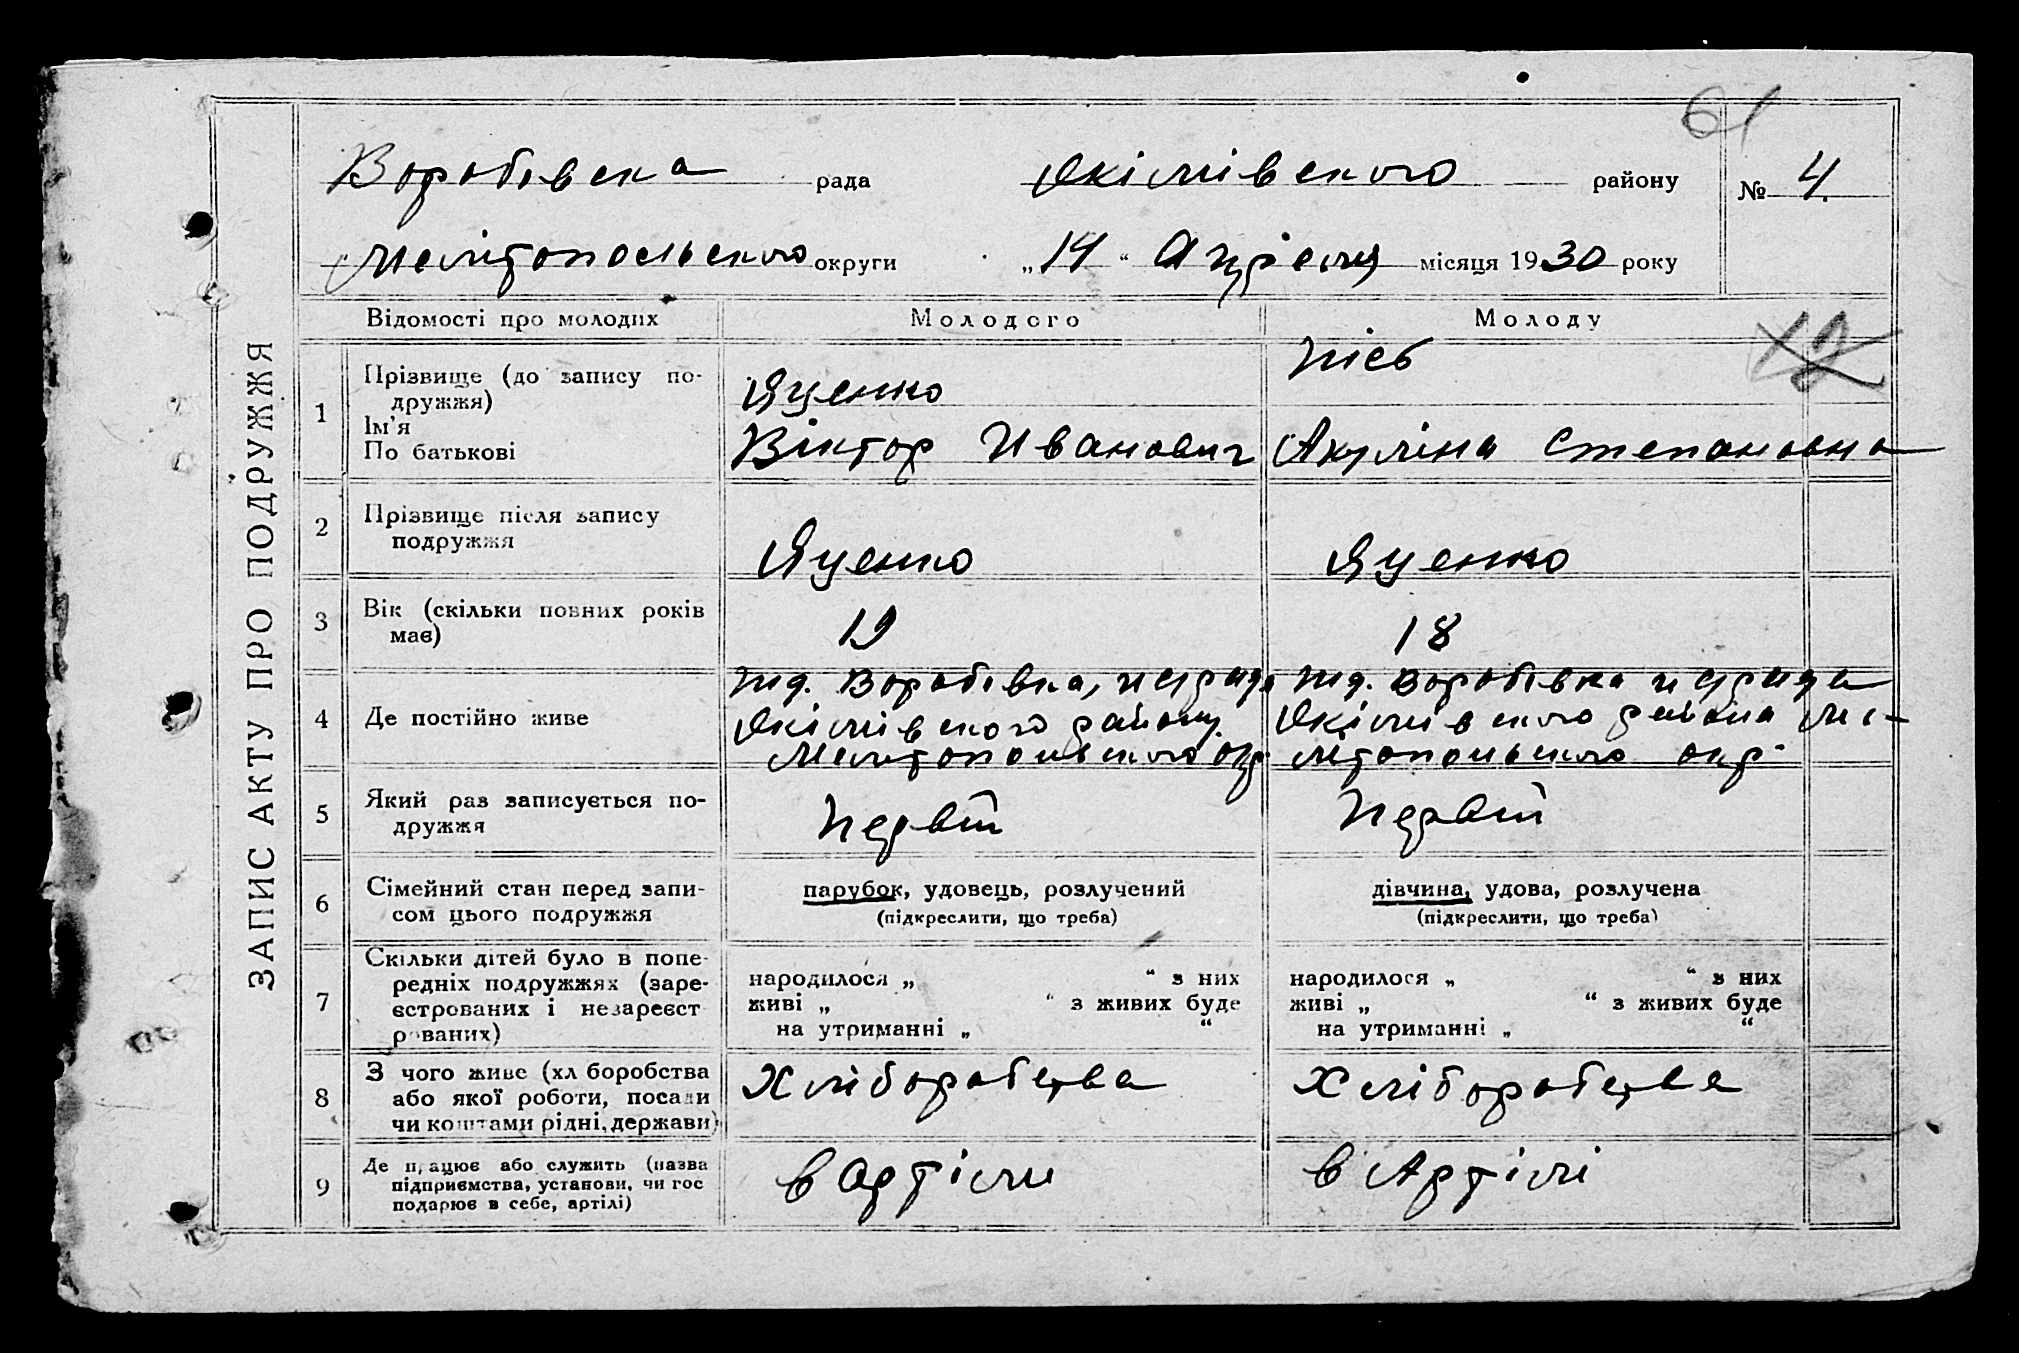 61
ЗАПИС АКТУ ПРО ПОДРУЖЖЯ
Воробівска рада Якімівского району № 4.
Мелітопольского округи „14“ Апріля місяця 1930 року
Відомості про молодих Молодого Молоду
1 Прізвище (до запису по-
дружжя)
Ім'я
По батькові
Яценко
Віктор Иванович
Акуліна Степановна
2 Прізвище після запису
подружжя
Яценко
Яценко
3 Вік (скільки повних років
має)
19
18
4 Де постійно живе
Воробівка,
Якімівского району
Мелітопольского окр
Воробівка
Якімівского района Ме-
літопольского окр.
5 Який раз записується по-
дружжя
Первій
Первій
6 Сімейний стан перед запи-
сом цього подружжя
парубок, удовець, розлучений
(підкреслити, що треба)
дівчина, удова, розлучена
(підкреслити, що треба)
7 Скільки дітей було в попе-
редніх подружжях (заре-
єстрованих і незареєст
рованих)
народилося „ “ з них
живі „ “ з живих буде
на утриманні „ “
народилося „ “ з них
живі „ “ з живих буде
на утриманні „ “
8 З чого живе (хл боробства
або якої роботи, посади
чи коштами рідні, держави)
Хліборобства
Хліборобства
9 Де працює або служить (назва
підприємства, установи, чи гос
подарює в себе, артілі)
в Артіли
в Артілі